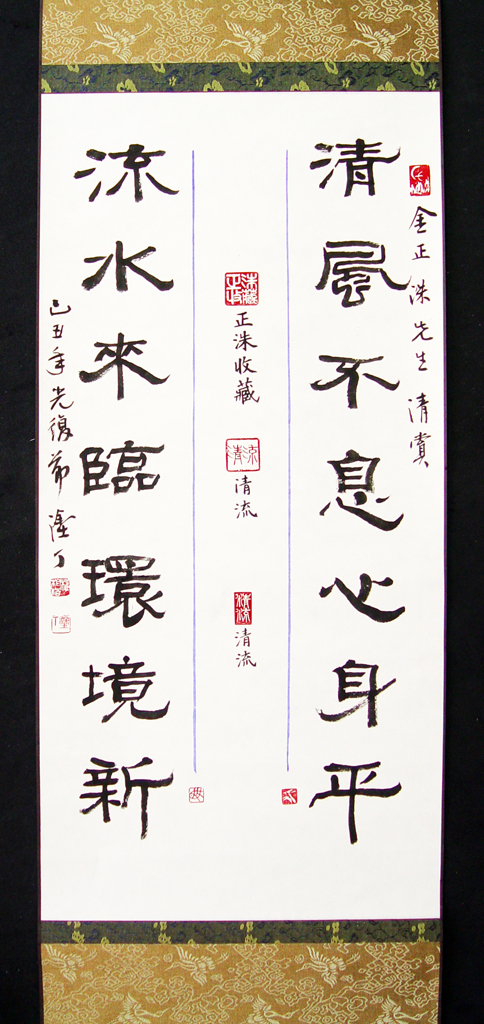 金正洙先生 清賞
清風不息心身平
正洙收藏
清流
清流
流水來臨環境新
己丑年光復節